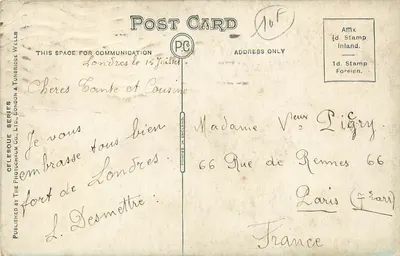 POST CARD
10F
THIS SPACE FOR COMMUNICATION
ADDRESS ONLY
Affix
½d. Stamp
Inland.
1d. Stamp
Foreign.
PC
Londres le 15 Juillet
Chères Tante et Cousine
Je vous
embrasse tous bien
fort de Londres.
L. Desmettre.
Madame Vve
66 Rue de Rennes 66
Paris
France
CELESQUE SERIES
PUBLISHED BY THE PHOTOCHROM CO., LTD., LONDON & TUNBRIDGE WELLS